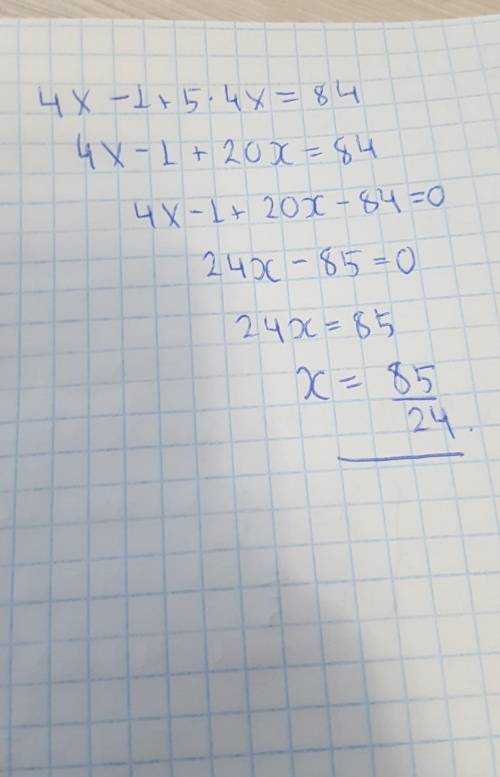 4x - 1 + 5 · 4x = 84
4x - 1 + 20x = 84
4x - 1 + 20x - 84 = 0
24x - 85 = 0
24x = 85
x = 85/24.